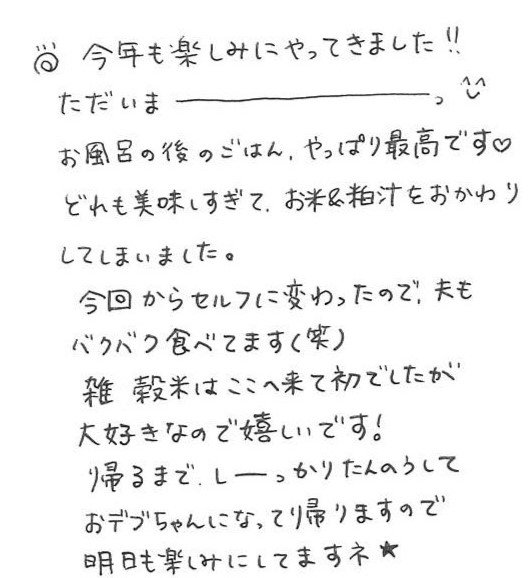 今年も楽しみにやってきました!!
ただいま――――――っ ^^
お風呂の後のごはん、やっぱり最高です♡
どれも美味しすぎて、お米&粕汁をおかわり
してしまいました。
今回からセルフに変わったので、夫も
バクバク食べてます(笑)
雑穀米はここへ来て初でしたが
大好きなので嬉しいです!
帰るまで、しーっかりたんのうして
おデブちゃんになってり帰りますので
明日も楽しみにしてますネ★